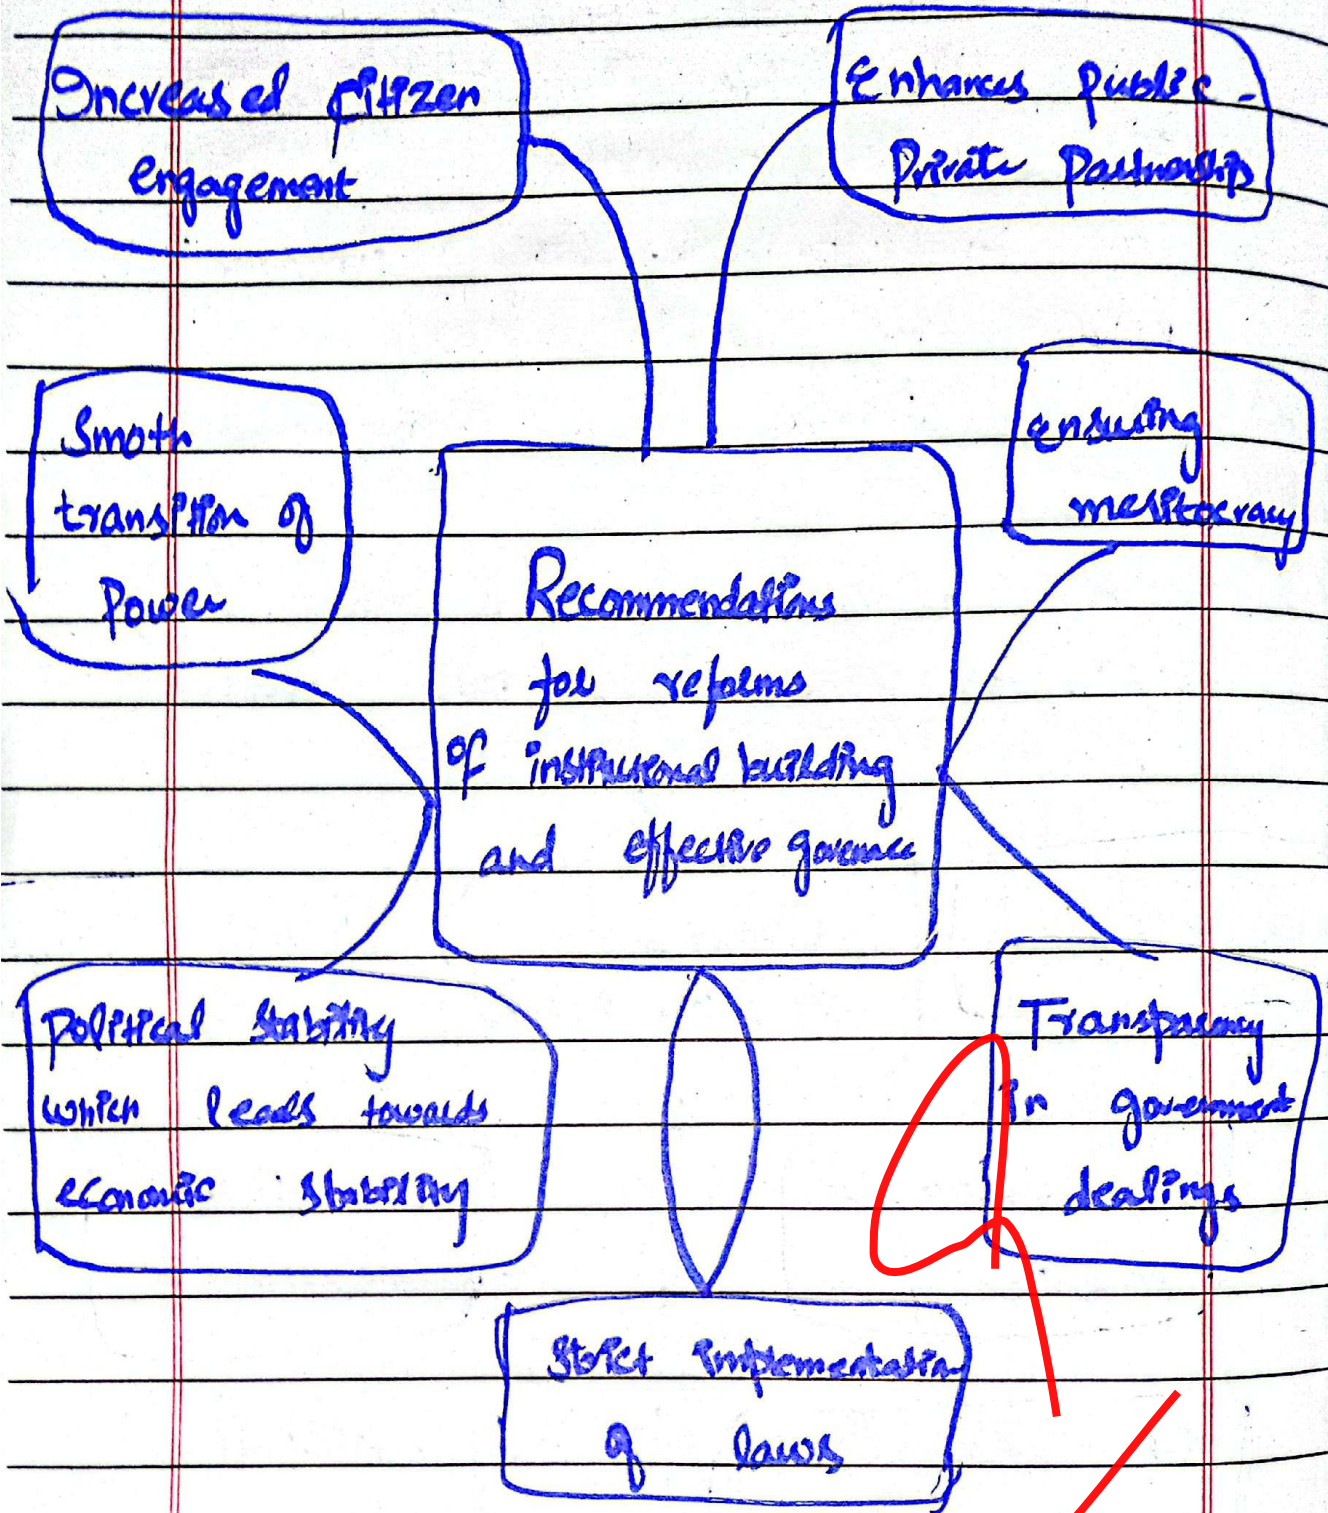 Increased Citizen
engagement
Enhances Public-
Private Partnership
Smoth
transition of
Power
Ensuing
meritocracy
Recommendations
for reforms
of institutional building
and effective governce
Political Stability
which leads towards
economic stability
Transparency
in government
dealings
Strict implementation
of laws